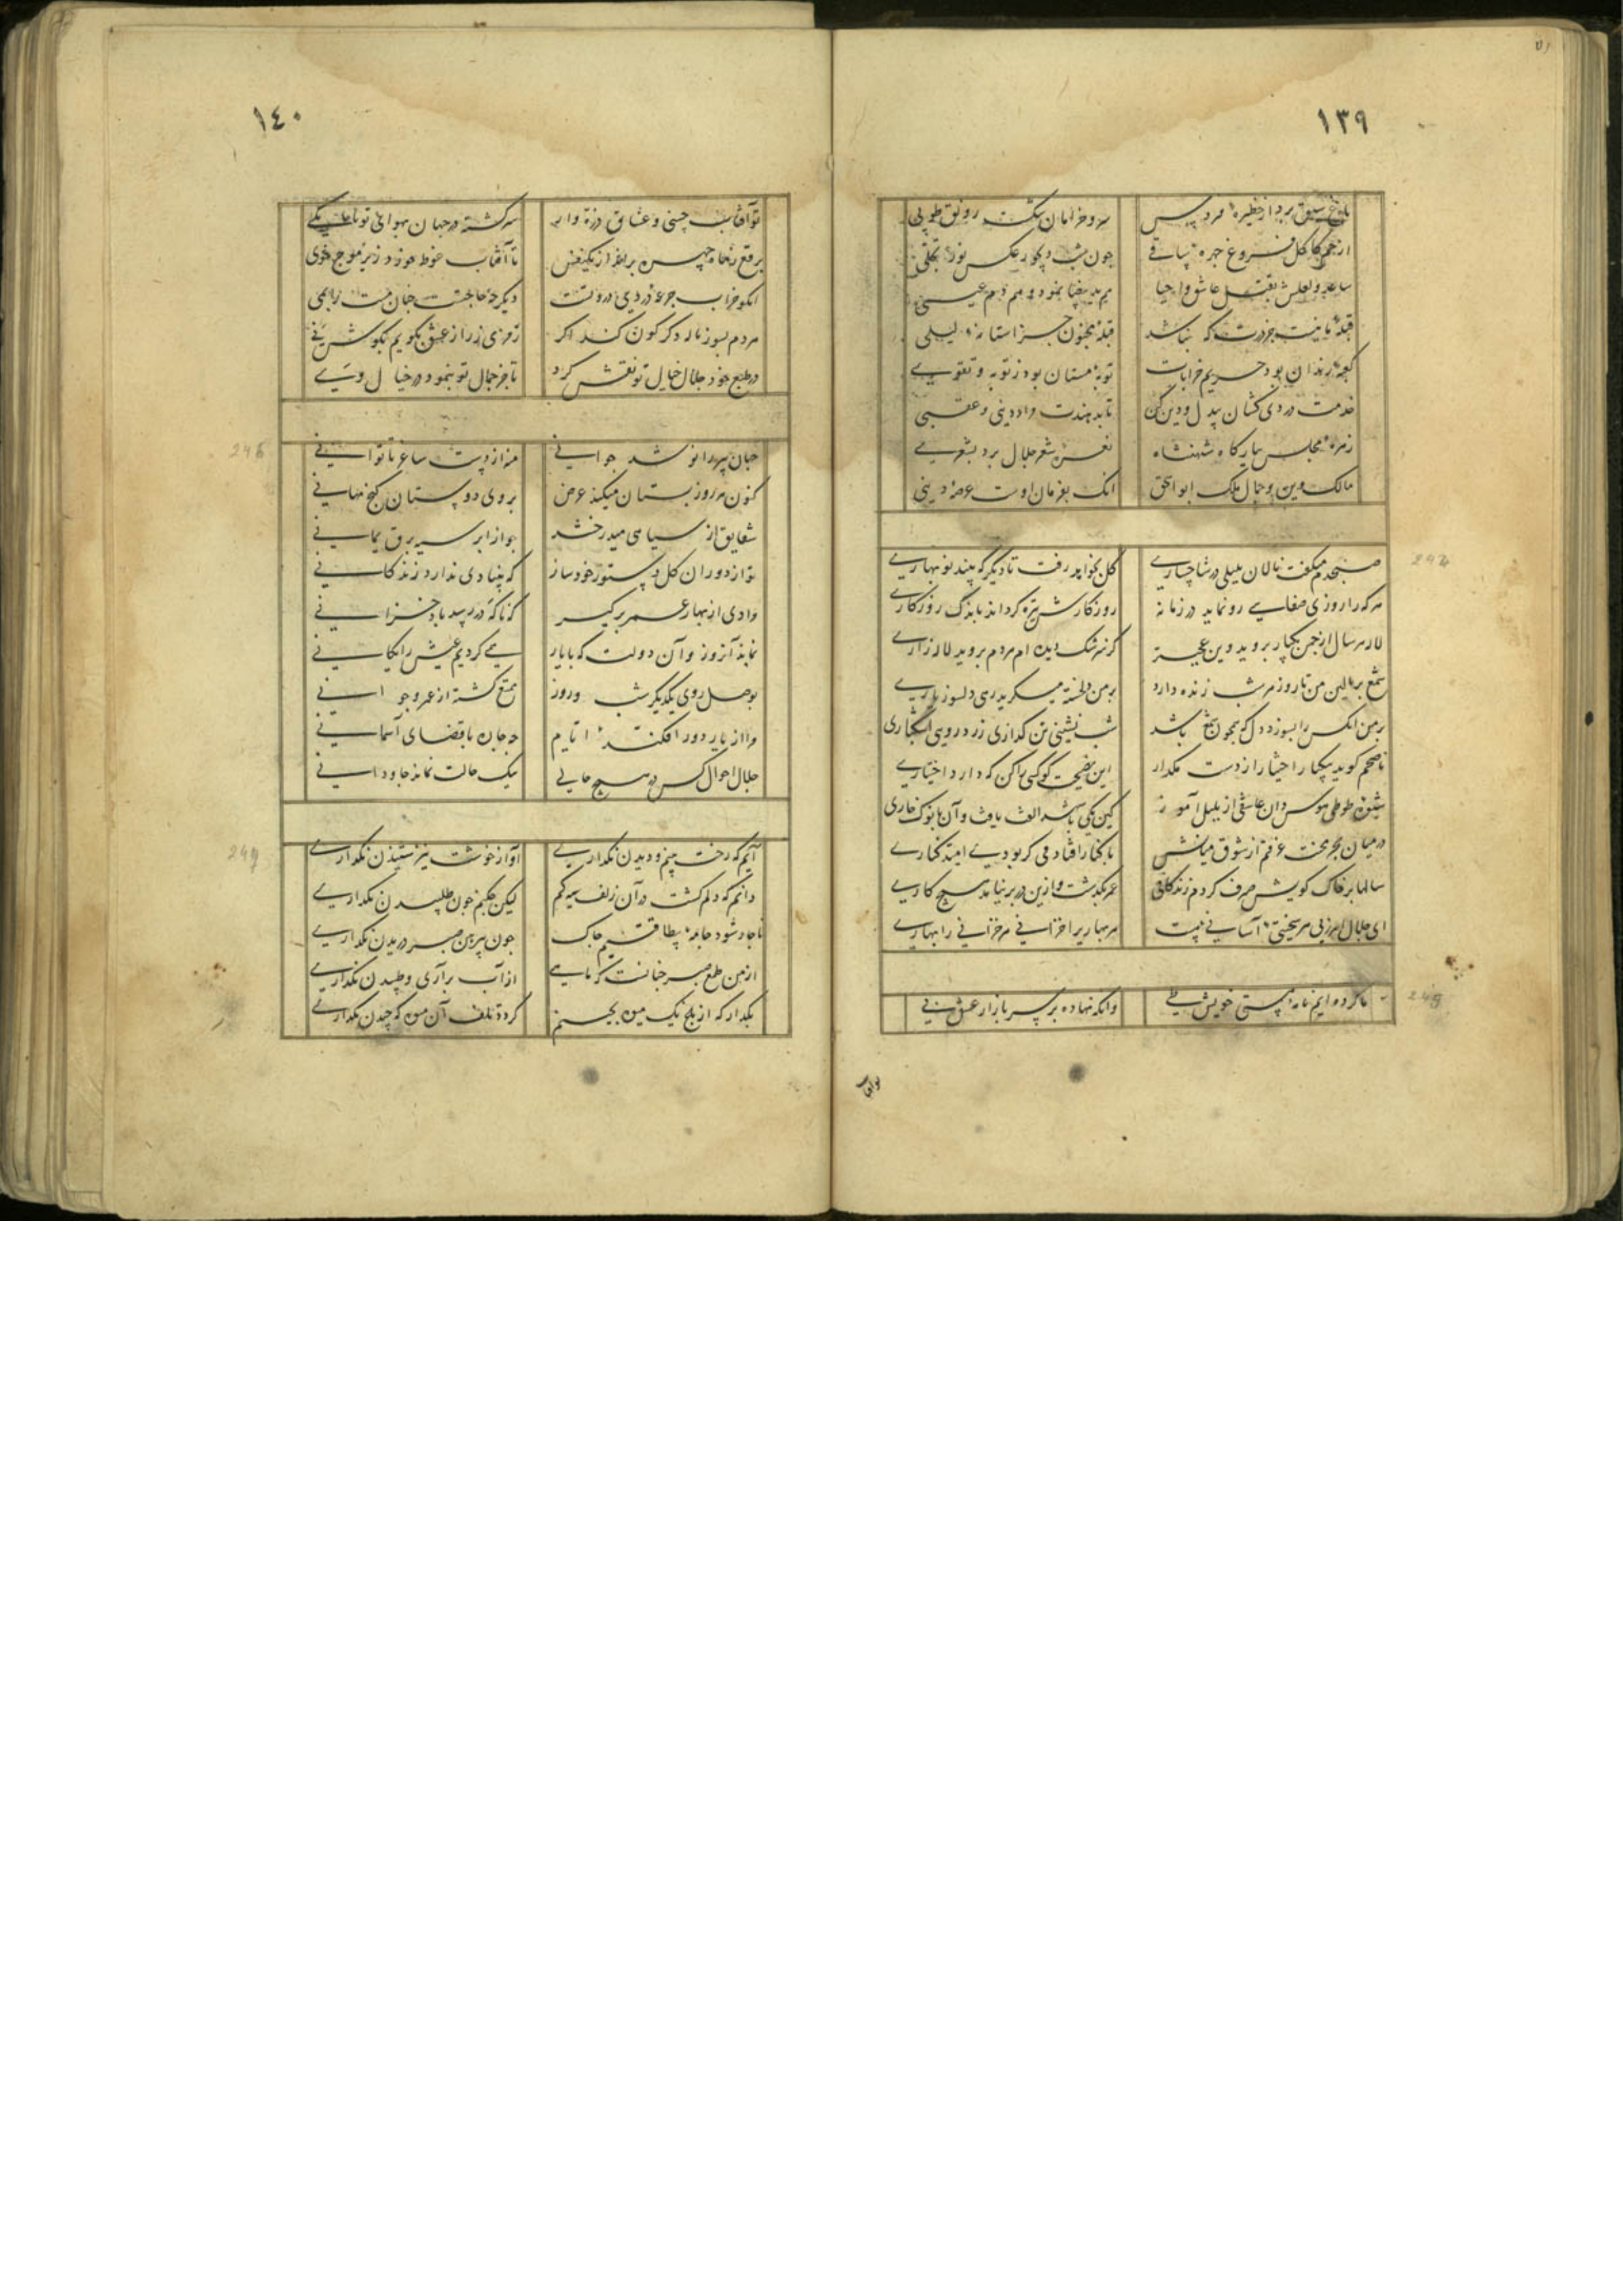 ۱۳۹
سرو خرامان شکست رونق طوبی
ازخم کاکل فروغ چهره ساقی
چون شب دیجور عکس نور تجلی
ساعد و لعلش بقتل عاشق و احیا
هم ید بیضا نمود و هم دم عیسی
قبله ما نیست جز درت که نباشد
قبله مجنون جز استانه لیلی
کعبه رندان بود حریم خرابات
توبه مستان بود ز توبه و تقوی
خدمت دردی کشان بدل و دین کن
تا بدهندت مراد دینی و عقبی
زهره مجلس ببارگاه شهنشاه
نغمه شعر جلال برد بشعری
مالک دین و جمال ملک ابواسحق
انک بفرمان اوست عرصه دینی
صبحدم میگفت نالان بلبلی در شاخساری
گل بخواهد رفت تا دیگر که بیند نوبهاری
هر که را روزی صفایی رو نماید در زمانه
روزکارش تیره کرداند باندک روزکاری
لاله هر سال از چمن یکبار بروید وین عجبتر
کز سرشک دیده ام هر دم بروید لاله زاری
شمع بر بالین من تا روز هر شب زنده دارد
بر من دلخسته میگرید زهی دلسوز یاری
بر من انکس را بسوزد دل که همچون شمع باشد
شب نشینی تن گدازی زرد رویی اشکباری
ناصحم گوید بیکبار اختیار از دست مگذار
این نصیحت گو کسی را کن که دارد اختیاری
شیوه طوطی هوس دان عاشقی از بلبل آموز
کین یکی با شد الف یافت و آن با نوک خاری
در میان بحر محنت غرقم از شوق میانش
با کنار افتادمی گر بودی امید کناری
سالها بر خاک کویش صرف کردم زندگانی
عمر بگذشت و ازین در بر نیامد هیچ کاری
ای جلال هر سختی آسانی
هر بهاری را خزانی هر خزانی را بهاری
ما کرده ایم مایه هستی خویش طی
وانکه نهاده بر سر بازار عشق پی
۱۴۰
تو آفتاب حسنی و عشاق ذره وار
سرگشته در جهان بهوای تو تا بکی
برقع ز ماه چهره برانداز یکنفس
تا آفتاب غوطه خورد زیر موج خوی
انکو خراب جرعه دردی درد تست
دیگر چه حاجتست چنان مست را بمی
مردم بسوز ناله دگرگون کند اگر
رمزی ز راز عشق بگویم بگوش نی
در طبع خود جلال خیال تو نقش کرد
تا جز جمال تو ننمود در خیال وی
جهان پیر را نو شد جوانی
منه از دست ساغر تا توانی
کنون هر روز بستان میکند عرض
بروی دوستان گنج نهانی
شقایق از سیاهی میدرخشد
چو از ابر سیه برق یمانی
تو از دوران گل دستور خود ساز
که بنیادی ندارد زندگانی
مرادی از بهار عمر برگیر
که ناگه در رسد باد خزانی
نماند آنروز و آن دولت که با یار
همی کردیم عیش رایگانی
بوصل روی یکدیگر شب و روز
تمتع گشته از عمر و جوانی
مرا از یار دور افکند ایام
چه جان با قضای آسمانی
جلال احوال کس در هیچ حالی
بیک حالت نماند جاودانی
آیم که رخت بینم و دیدن نگذاری
آواز خوشت نیز شنیدن نگذاری
دانم که دلم گشت در آن زلف سیه گم
لیکن چکنم چون طلبیدن نگذاری
ناچار شود جامه بیطاقتیم چاک
چون پیرهن صبر دریدن نگذاری
از من طمع صبر چنانست که ماهی
از آب برآری و طپیدن نگذاری
بگذار که از باغ یک میوه بچینم
گردد تلف آن میوه که چیدن نگذاری
تو آفتاب